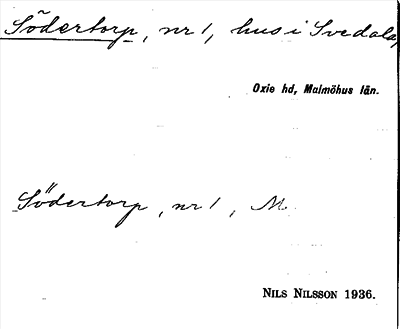 Södertorp, nr 1, hus i Svedala,
Oxie hd, Malmöhus län.
Södertorp, nr 1, M.
NILS NILSSON 1936.